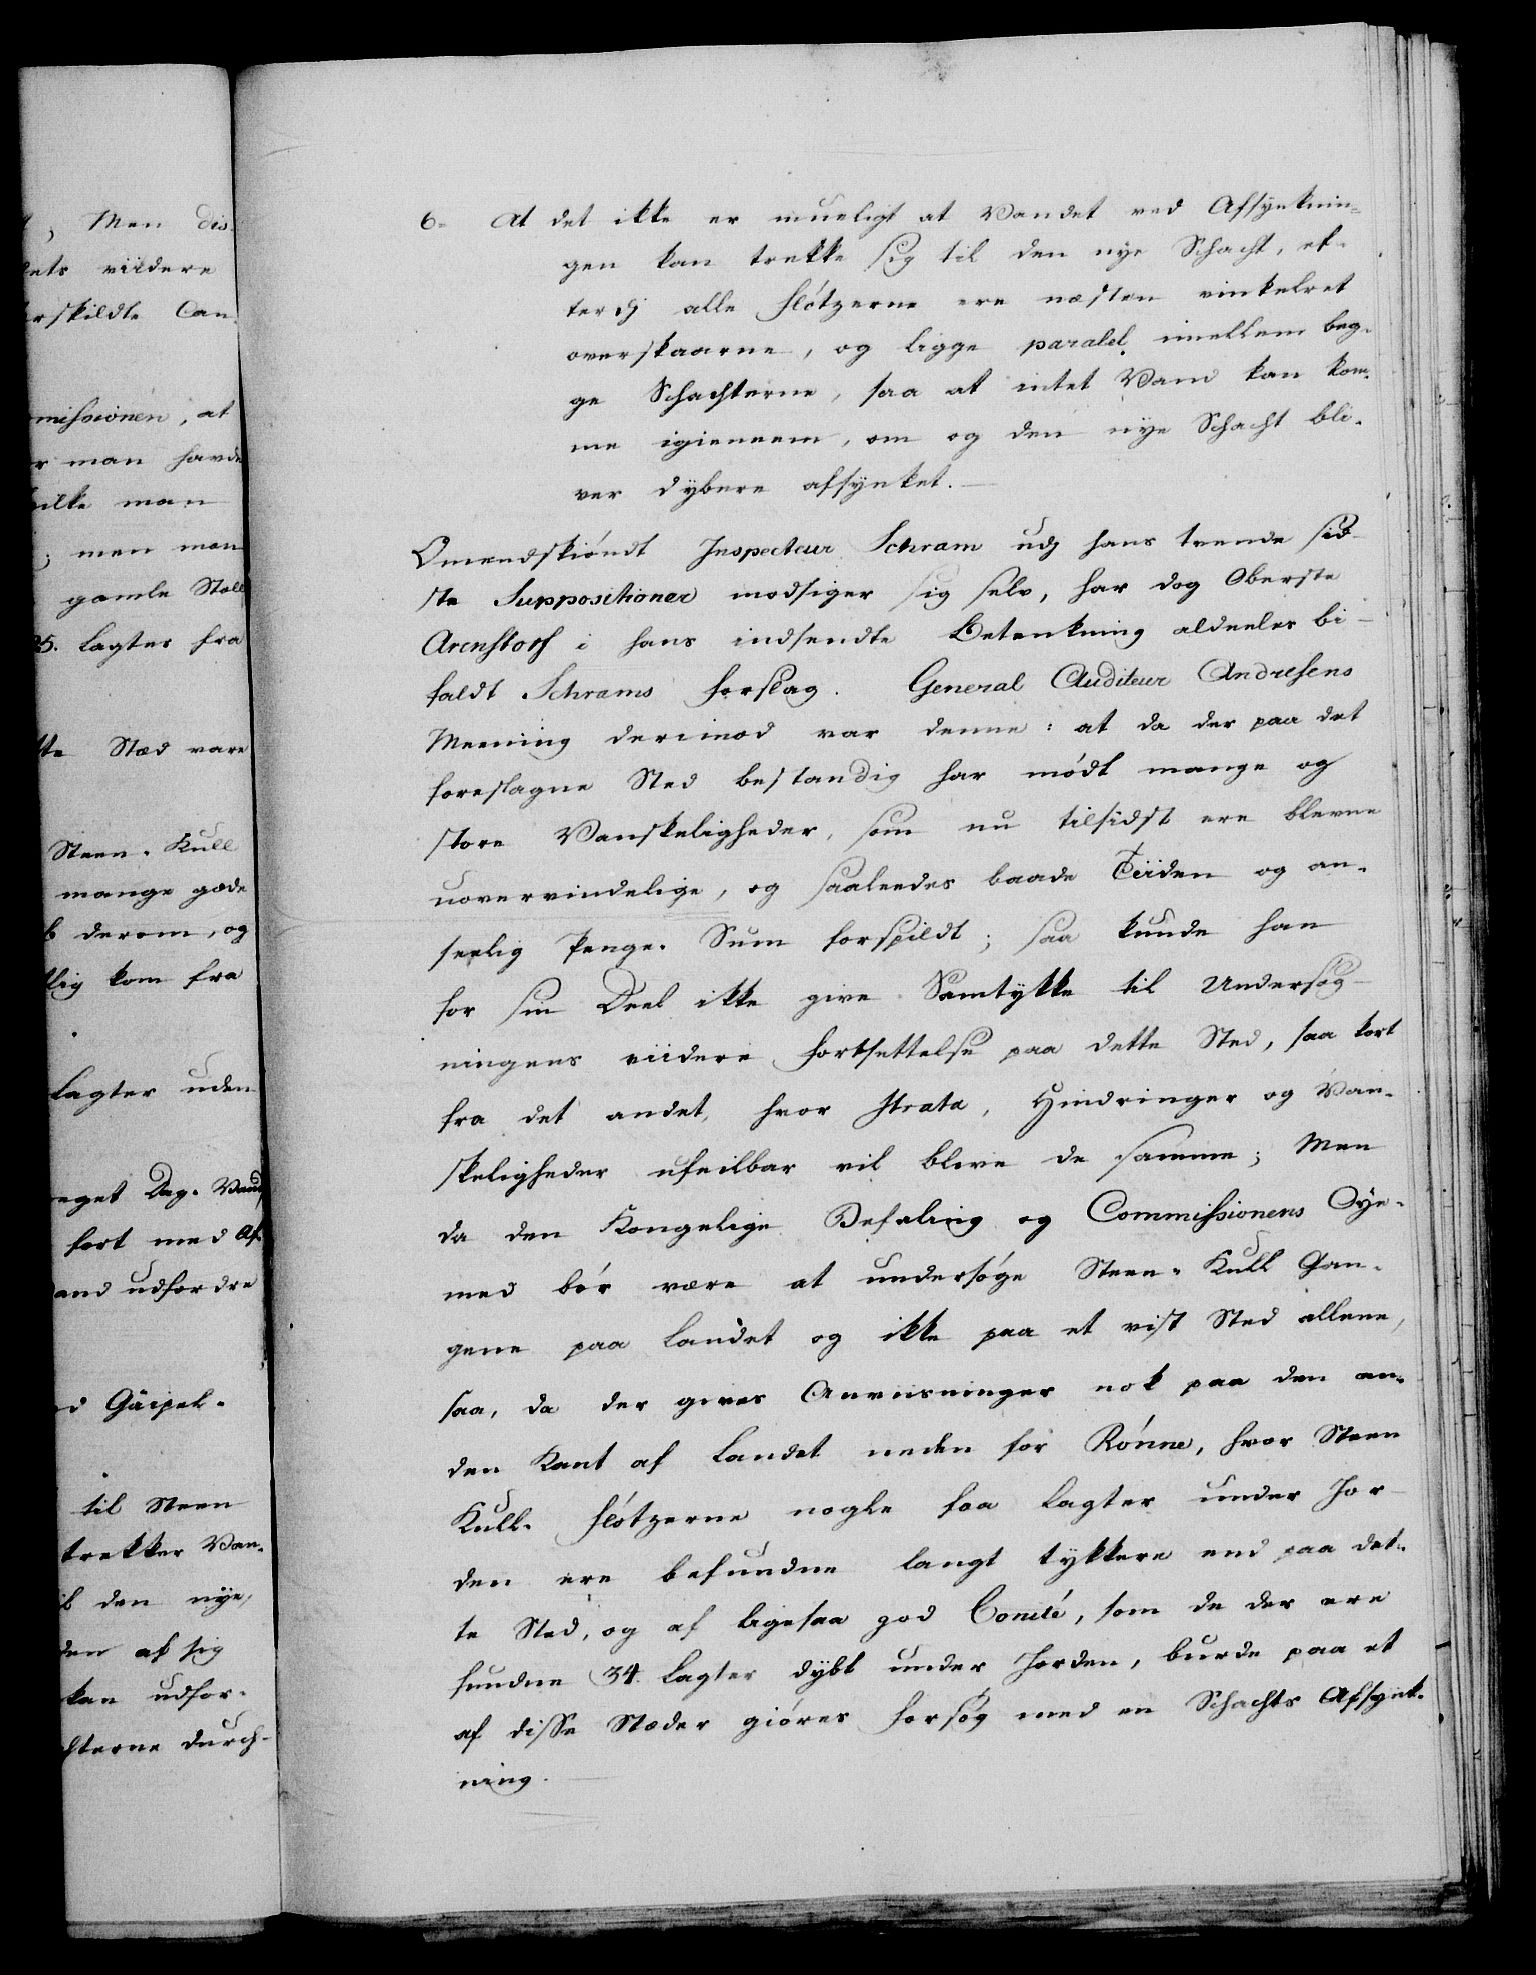 , Men dis
dets viidere
rskildte Can
missionen, at
r man havde
hvilke man
; men man
gamle Stoll
25. Lagter fra
tte Stæd vare
Steen-Kull
mange gode
b derom, og
lig kom fra
Lagter uden
eget Dag-Vand
fort med Af-
and udfordre
d Gäipel-
til Steen
trekker Van-
il den nye,
den af sig
kan udfor-
hterne durch-
6= At det ikke er mueligt at Vandet ved Afsynknin-
gen kan trekke sig til den nye Schacht, ef-
terdj alle flötzerne ere næsten vinkelret
overskaarne, og ligge paralel imellem beg-
ge Schachterne, saa at intet Vand kan kom-
me igiennem, om og den nye Schacht bli-
ver dybere afsynket.
Omendskiöndt Inspecteur Schram udj hans trende sid-
ste Suppositioner modsiger sig selv, har dog Oberste
Arenstorf i hans indsendte Betenkning aldeeles bi-
faldt Schrams forslag. General Auditeur Andresens
Meening derimod var denne: at da der paa det
foreslagne Sted bestandig har mödt mange og
store Vanskeligheder, som nu tilsidst ere blevne
uovervindelige, og saaleedes baade Tiiden og an-
seelig Penge-Sum forspildt; saa kunde han
for sin Deel ikke give Samtykke til Undersög-
ningens viidere fortsettelse paa dette Sted, saa kort
fra det andet, hvor Strata, Hindringer og Van-
skeligheder ufeilbar vil blive de samme; Men
da den Kongelige Befaling og Commissionens Öye-
med bör være at undersöge Steen-Kull Gan-
gene paa Landet og ikke paa et vist Sted allene,
saa, da der gives Anviisninger nok paa den an-
den Kant af Landet neden for Rönne, hvor Steen
Kull-flötzerne nogle faa Lagter under Jor-
den ere befundne langt tykkere end paa det-
te Sted, og af ligesaa god Bonité, som de der ere
fundne 34. Lagter dybt under Jorden, burde paa et
af disse Stæder giöres forsög med en Schachts Afsynk-
ning.